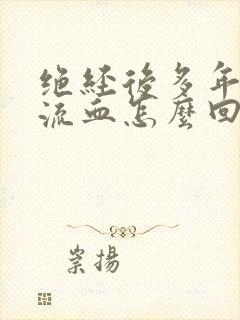 绝经後多年
流血怎麼回
崇揚